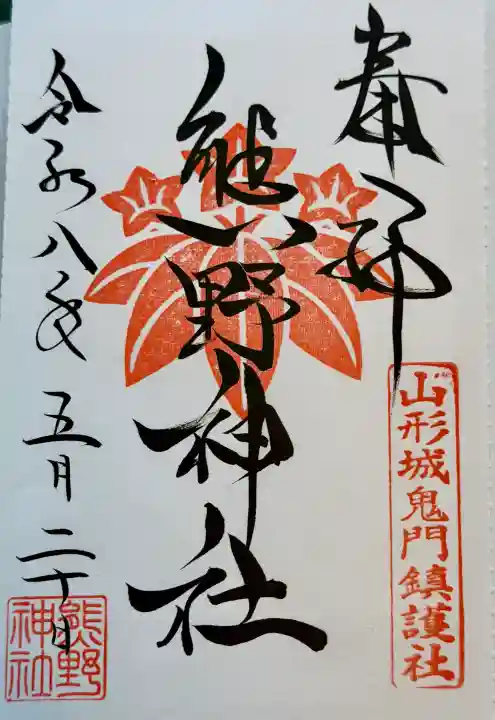 奉拝
山形城鬼門鎮護社
熊野神社
令和八年五月二十日
熊野神社